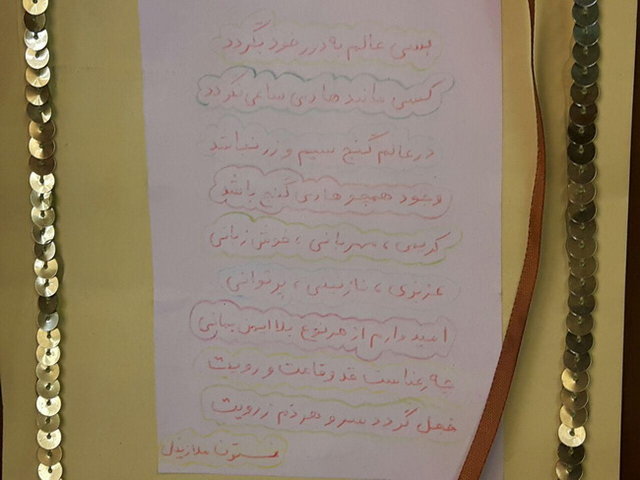 بسی عالم به دور خود بگردد
کسی مانند هادی ساعی نگردد
در عالم گنج سیم و زر نباشد
وجود همچو هادی گنج باشد
کریمی ، مهربانی ، خوش زبانی
عزیزی ، نازنینی ، پرتوانی
امیدوارم از هر نوع بلا ایمن بمانی
چه رعناست قد و قامت و رویت
خجل گردد سرو هر دم ز رویت
فستونا